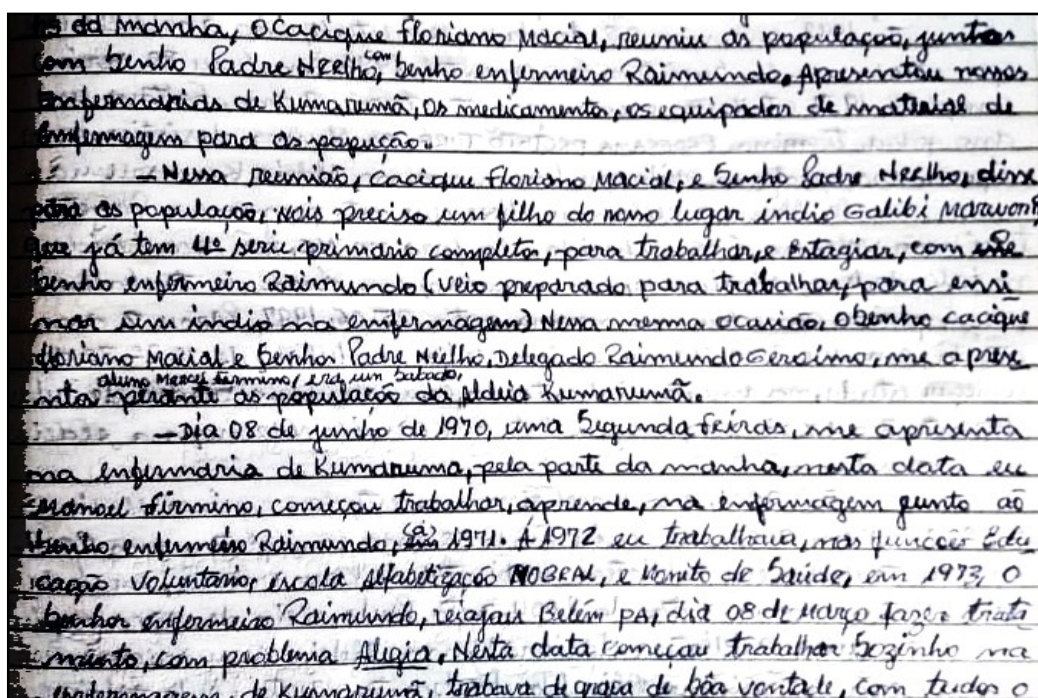 da manhã, o cacique floriano Macial, reuniu as população, juntos
com Senho Padre Nello, com Senho enfermeiro Raimundo. Apresentou nossos
enfermarias de Kumarumã, os medicamento, os equipador de material de
enfermagem para as papução.
– Nessa reunião, cacique floriano Macial, e Senho Padre Nello, disse
para as população, nois preciso um filho do nosso lugar índio Galibi Marwono
que já tem 4ª serie primario completo, para trabalhar, e Estagiar, com
Senho enfermeiro Raimundo (veio preparado para trabalhar, para ensi
nar um indio na enfermagem) Nessa mesma ocasião, o Senho cacique
floriano Macial e Senhor Padre Nello, Delegado Raimundo Geroimo, me apres
enta aluno Manoel firmino, era um Sabado, perante as população da Aldeia Kumarumã.
– Dia 08 de junho de 1970, uma Segunda feiras, me apresenta
na enfermaria de Kumaruma, pela parte da manha, nesta data eu
Manoel firmino, começou trabalhar, aprende, na enfermagem gunto ao
Senho enfermeiro Raimundo, (a) em 1971. A 1972 eu trabalhava, nas funccões Edu
cação voluntario, escola Alfabetização MOBRAL, e Monito de Saúde, em 1973, o
Senhor enfermeiro Raimundo, viajou Belém PA, dia 08 de Março fazer trata
mento, com problema Alegia, Nesta data começou trabalhar Sozinho na
enfermagem, de Kumarumã, trabava de graça de bôa vontade, com tudos o